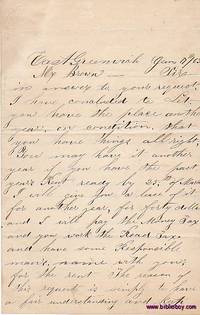 East Greenwich Jan 29
Mr Brown — Sir
in answer to your request
I have concluded to Let
you have the place another
year, on condition, that
you have things all right;
You may have it another
year if you have the past
years Rent ready by 25, of March
I will give you a lease
for another year, for forty dollars
and I will pay the Money Tax
and you work the Road Tax
and have some Responsible
man's name with you
for the rent The reason of
this request is simply to have
a fair understanding and
www.bibleboy.com